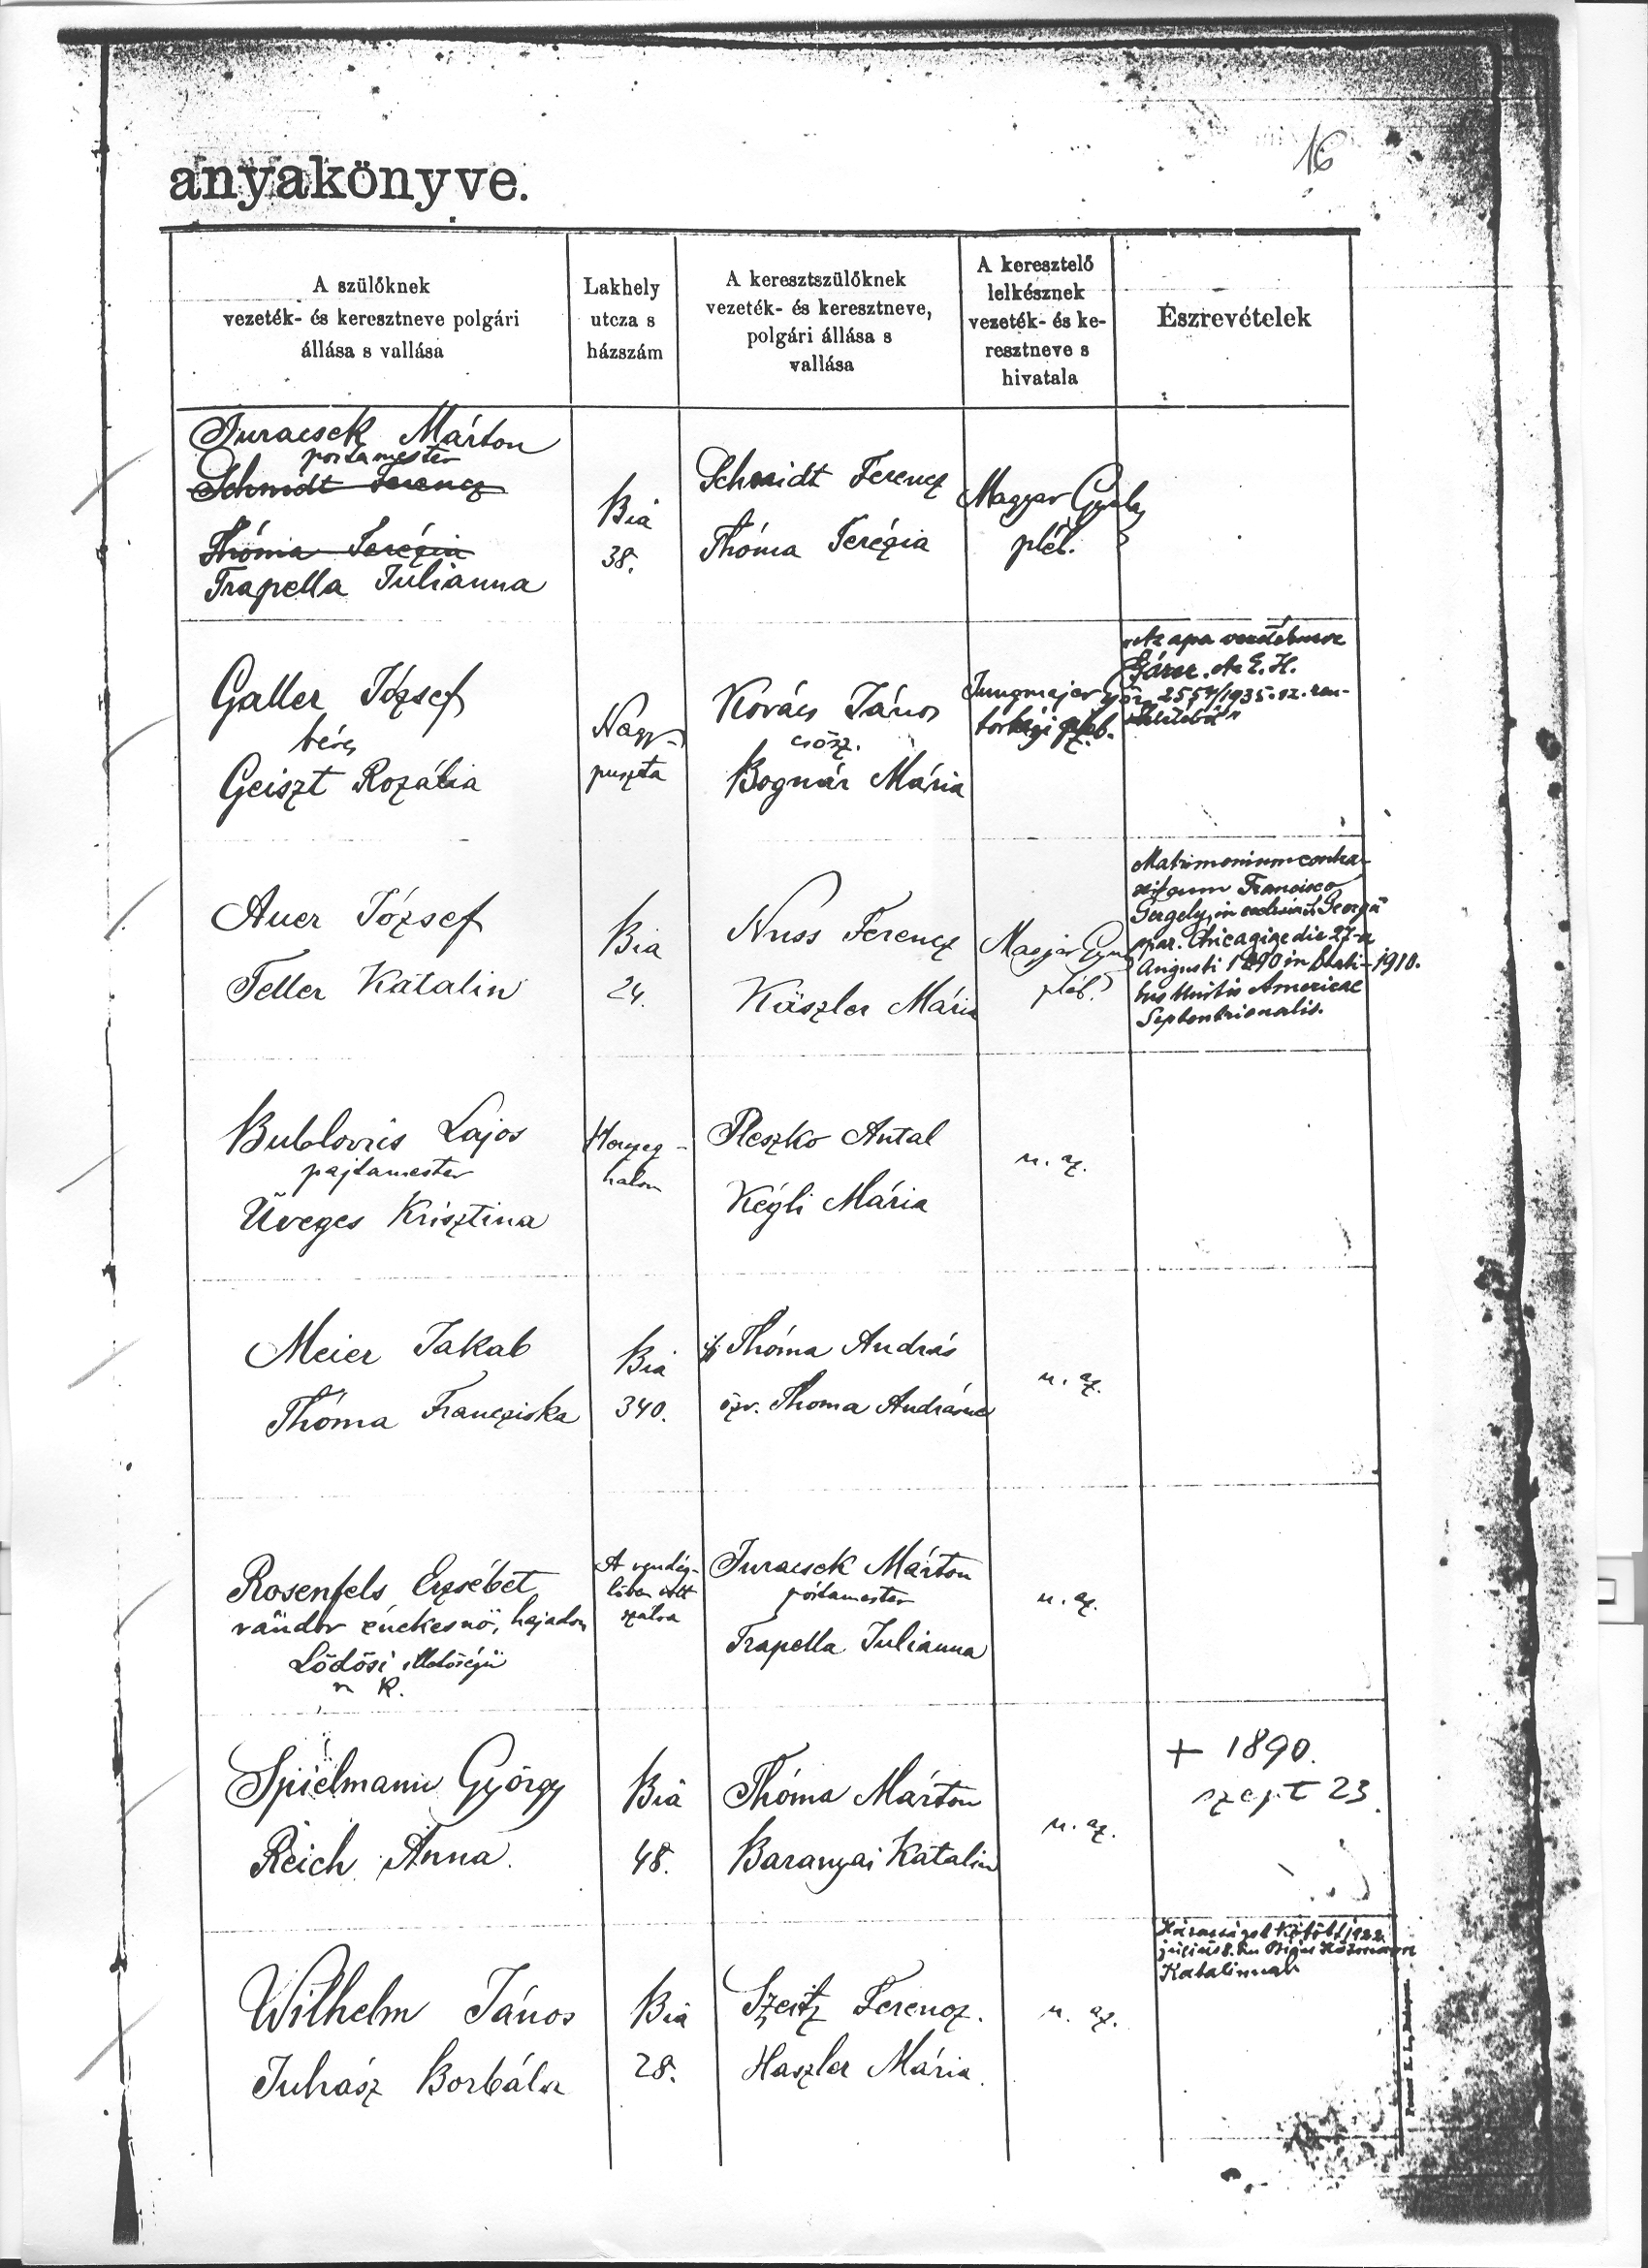 16
anyakönyve.
A szülőknek
vezeték- és keresztneve polgári
állása s vallása
Lakhely
utcza s
házszám
A keresztszülőknek
vezeték- és keresztneve,
polgári állása s
vallása
A keresztelő
lelkésznek
vezeték- és ke-
resztneve s
hivatala
Észrevételek
Juracsek Márton
postamester
Schmidt Ferencz
Thóma Terézia
Trapella Julianna
Bia
38.
Schmidt Ferencz
Thóma Terézia
Magyar Gyula
pléb.
Galler József
béres
Geiszt Rozália
Nagy-
puszta
Kovács János
csősz.
Bognár Mária
Jungmajer
torbágyi pléb.
Az apa vezetékneve
A E. H.
2557/1935. sz. ren-
Auer József
Teller Katalin
Bia
24.
Nuss Ferencz
Käszler Mária
Magyar Gyula
pléb.
Matrimonium contra-
xit cum Francisco
Gergely, in ecclesia S. Georgii
par. Chicagige die 27-a
Augusti 1890 in Stati- 1910.
bus Unitis Americae
Septentrionalis.
Bublovics Lajos
pajtamester
Üveges Krisztina
Herczeg-
halom
Pleszko Antal
Kégli Mária
u. az.
Meier Jakab
Thóma Francziska
Bia
340.
ifj. Thóma András
özv. Thoma Andrásné
u. az.
Rosenfels Erzsébet
vándor énekesnő, hajadon
illetőségű
r. k.
A vendég-
lőben volt
szálva
Juracsek Márton
póstamester
Trapella Julianna
u. az.
Spielmann György
Reich Anna.
Bia
48.
Thóma Márton
Baranyai Katalin
u. az.
+ 1890.
szept 23.
Wilhelm János
Juhász Borbála
Bia
28.
Szeitz Ferencz.
Haszler Mária.
u. az.
Házasságot kötött 1922.
Katalinnal